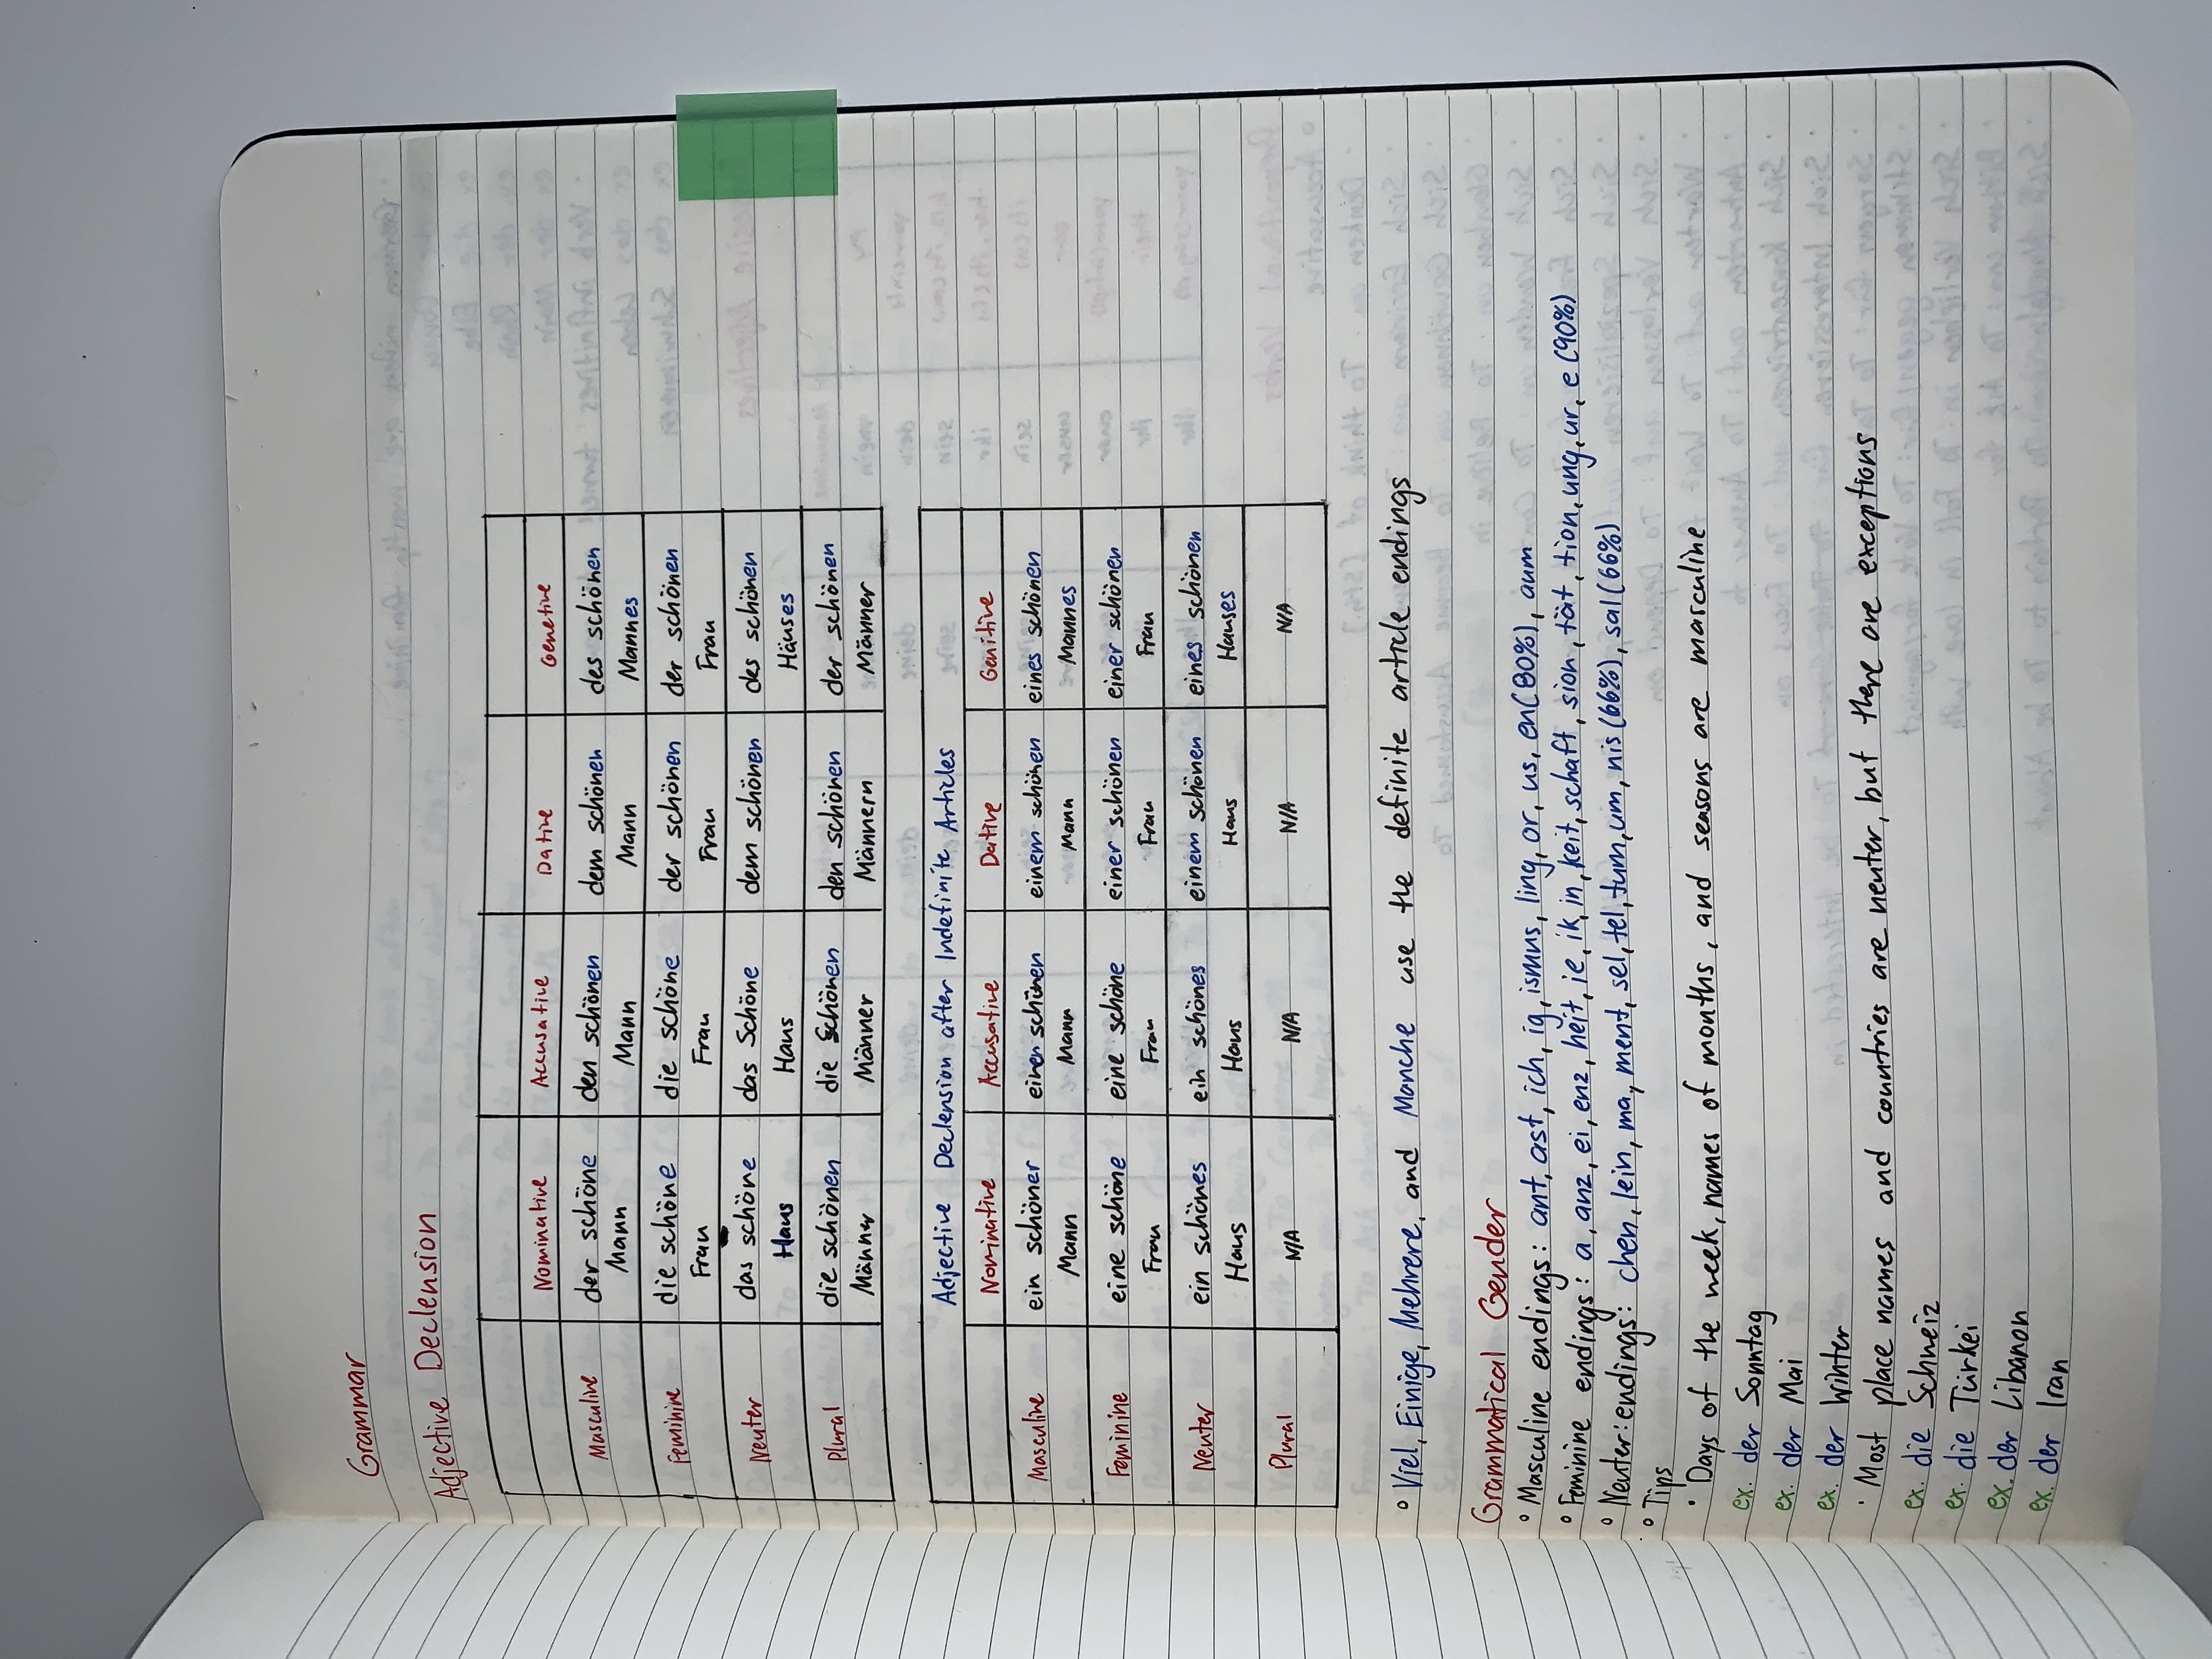 Grammar
Adjective Declension
Nominative Accusative Dative Genetive
Masculine der schöne den schönen dem schönen des schönen
Mann Mann Mann Mannes
Feminine die schöne die schöne der schönen der schönen
Frau Frau Frau Frau
Neuter das schöne das Schöne dem schönen des schönen
Haus Haus Häuses
Plural die schönen die Schönen den schönen der schönen
Männer Männer Männern Männer
Adjective Declension after Indefinite Articles
Nominative Accusative Dative Genitive
Masculine ein schöner einen schönen einem schönen eines schönen
Mann Mann Mann Mannes
Feminine eine schöne eine schöne einer schönen einer schönen
Frau Frau Frau Frau
Neuter ein schönes ein schönes einem schönen eines schönen
Haus Haus Haus Hauses
Plural N/A N/A N/A N/A
◦ Viel, Einige, Mehrere, and Manche use the definite article endings
Gramatical Gender
◦ Masculine endings: ant, ast, ich, ig, ismus, ling, or, us, en(80%), aum
◦ Feminine endings: a, anz, ei, enz, heit, ie, ik, in, keit, schaft, sion, tät, tion, ung, ur, e (90%)
◦ Neuter: endings: chen, lein, ma, ment, sel, tel, tum, um, nis (66%), sal (66%)
◦ Tips
· Days of the week, names of months, and seasons are masculine
ex. der Sonntag
ex. der Mai
ex. der Winter
· Most place names and countries are neuter, but there are exceptions
ex. die Schweiz
ex. die Türkei
ex. der Libanon
ex. der Iran